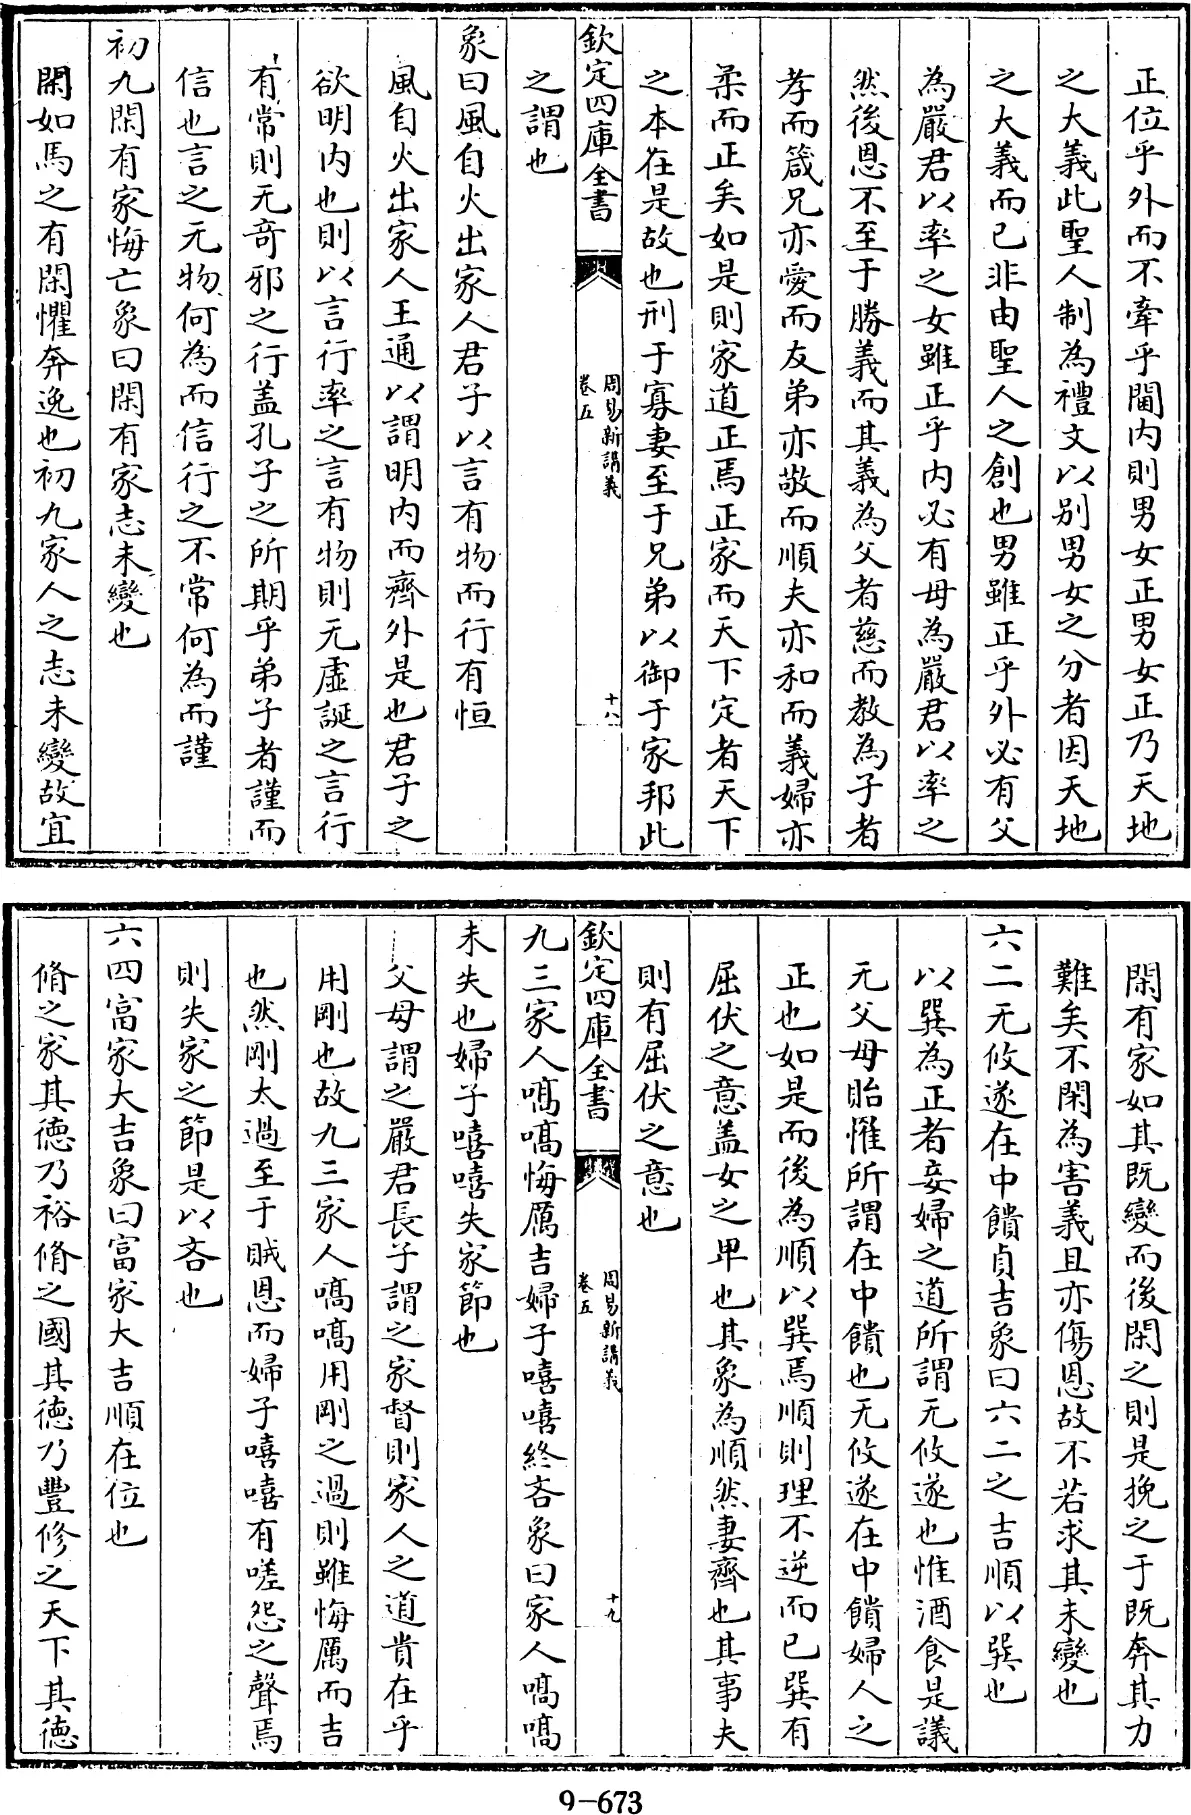 正位乎外而不牽乎閫内則男女正男女正乃天地
之大義此聖人制為禮文以别男女之分者因天地
之大義而已非由聖人之創也男雖正乎外必有父
為嚴君以率之女雖正乎内必有母為嚴君以率之
然後恩不至于勝義而其義為父者慈而教為子者
孝而箴兄亦愛而友弟亦敬而順夫亦和而義婦亦
柔而正矣如是則家道正焉正家而天下定者天下
之本在是故也刑于寡妻至于兄弟以御于家邦此
欽定四庫全書
周易新講義
卷五
十八
之謂也
象曰風自火出家人君子以言有物而行有恒
風自火出家人王通以謂明内而齊外是也君子之
欲明内也則以言行率之言有物則无虛誕之言行
有常則无奇邪之行盖孔子之所期乎弟子者謹而
信也言之无物何為而信行之不常何為而謹
初九閑有家悔亡象曰閑有家志未變也
閑如馬之有閑懼奔逸也初九家人之志未變故宜
閑有家如其既變而後閑之則是挽之于既奔其力
難矣不閑為害義且亦傷恩故不若求其未變也
六二无攸遂在中饋貞吉象曰六二之吉順以巽也
以巽為正者妾婦之道所謂无攸遂也惟酒食是議
无父母貽懼所謂在中饋也无攸遂在中饋婦人之
正也如是而後為順以巽焉順則理不逆而已巽有
屈伏之意盖女之卑也其象為順然妻齊也其事夫
則有屈伏之意也
欽定四庫全書
周易新講義
卷五
十九
九三家人嗃嗃悔厲吉婦子嘻嘻終吝象曰家人嗃嗃
未失也婦子嘻嘻失家節也
父母謂之嚴君長子謂之家督則家人之道貴在乎
用剛也故九三家人嗃嗃用剛之過則雖悔厲而吉
也然剛太過至于賊恩而婦子嘻嘻有嗟怨之聲焉
則失家之節是以吝也
六四富家大吉象曰富家大吉順在位也
脩之家其德乃裕脩之國其德乃豐修之天下其德
9-673